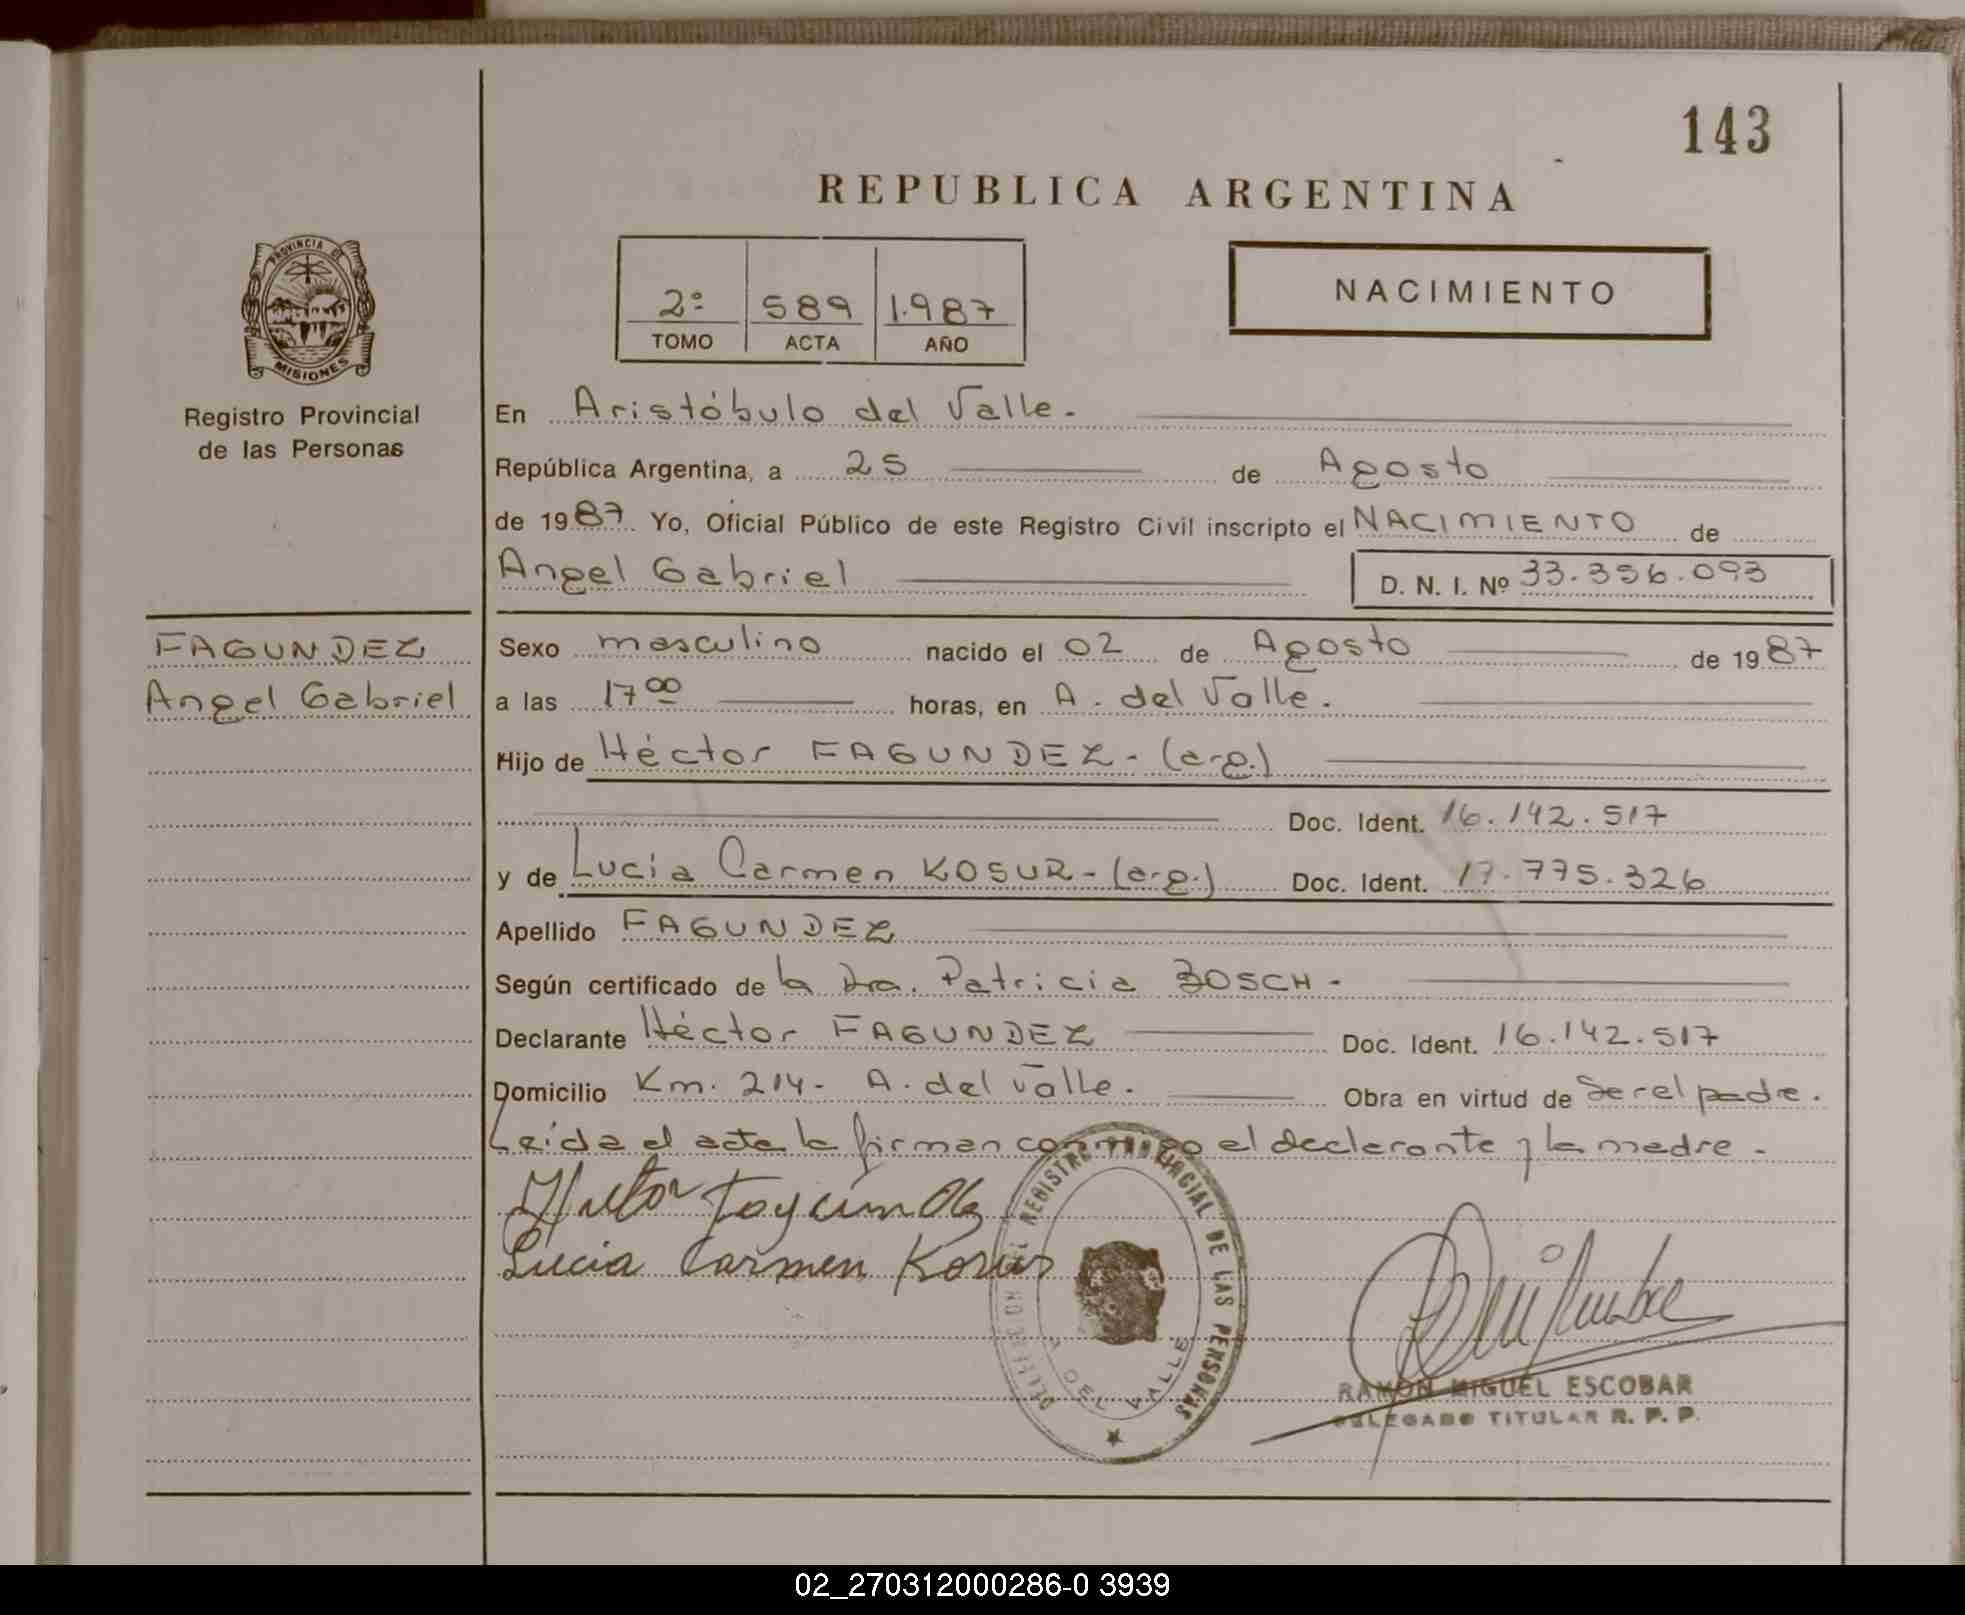 143
REPUBLICA ARGENTINA
PROVINCIA DE
MISIONES
Registro Provincial
de las Personas
2º 589 1.987
TOMO ACTA AÑO
NACIMIENTO
En Aristóbulo del Valle.
República Argentina, a 25 de Agosto
de 1987 Yo, Oficial Público de este Registro Civil inscripto el NACIMIENTO de
Angel Gabriel D. N. I. Nº 33.356.093
FAGUNDEZ
Angel Gabriel
Sexo masculino nacido el 02 de Agosto de 1987
a las 17 00 horas, en A. del Valle.
Hijo de Héctor FAGUNDEZ - (arg.)
Doc. Ident. 16.142.517
y de Lucía Carmen KOSUR - (arg.) Doc. Ident. 17.775.326
Apellido FAGUNDEZ
Según certificado de la Dra. Patricia BOSCH -
Declarante Héctor FAGUNDEZ Doc. Ident. 16.142.517
Domicilio Km. 214 - A. del Valle. Obra en virtud de ser el padre.
Leída el acta la firman conmigo el declarante y la madre.
Lucia Carmen Kosur
REGISTRO PROVINCIAL DE LAS PERSONAS
A DEL VALLE
RAMON MIGUEL ESCOBAR
DELEGADO TITULAR R. P. P.
02_270312000286-0 3939